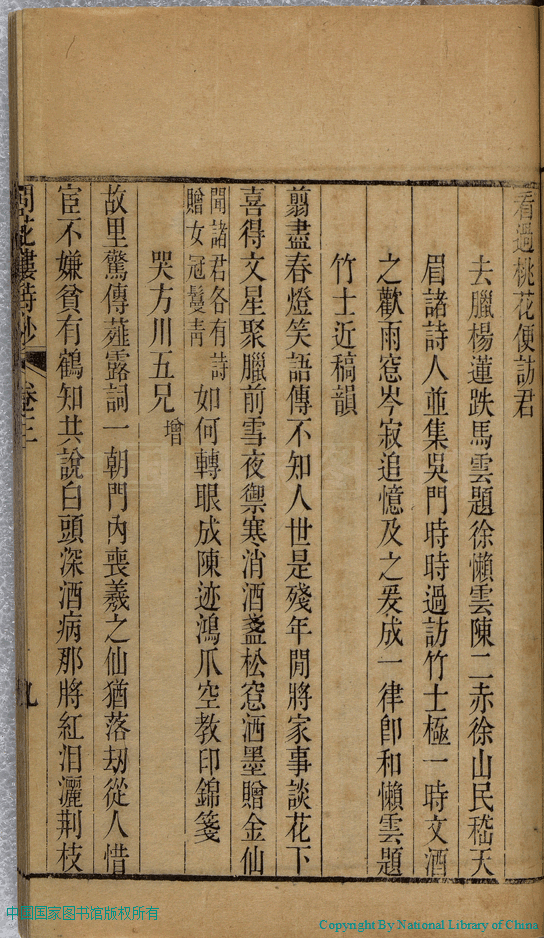 看過桃花便訪君
去臘楊蓮趺馬雲題徐懶雲陳二赤徐山民嵇天
眉諸詩人並集吳門時時過訪竹士極一時文酒
之歡雨窓岑寂追憶及之爰成一律卽和懶雲題
竹士近稿韻
翦盡春燈笑語傳不知人世是殘年閒將家事談花下
喜得文星聚臘前雪夜禦寒消酒盞松窓洒墨贈金仙
聞諸君各有詩
贈女冠鬘靑
如何轉眼成陳迹鴻爪空教印錦箋
哭方川五兄 增
故里驚傳薤露詞一朝門內喪羲之仙猶落劫從人惜
宦不嫌貧有鶴知共說白頭深酒病那將紅泪灑荆枝
問花樓詩鈔 卷三 九
中国国家图书馆版权所有
Copyright By National Library of China